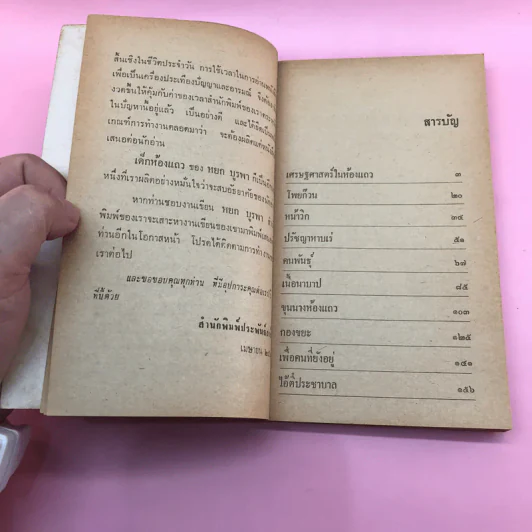 ลื่นเชิงในชีวิตประจำวัน การใช้เวลาในการอ่าน
เพื่อเป็นเครื่องประเทืองปัญญาและอารมณ์
งวดขึ้นให้คุ้มกับค่าของเวลาสำนักพิมพ์ของเรา
ในปัญหานี้อยู่แล้ว เป็นอย่างดี และได้
เกณฑ์การทำงานตลอดมาว่า จะต้องผลิต
เสนอต่อนักอ่าน
เด็กห้องแถว ของ หยก บูรพา ก็เป็น
หนึ่งที่เราผลิตอย่างหมั่นใจว่าจะสบอัธยาศัยของ
หากท่านชอบงานเขียน หยก บูรพา
พิมพ์ของเราจะเสาะหางานเขียนของเขามาพิมพ์
ท่านอีกในโอกาสหน้า โปรดได้ติดตามการทำงาน
เราต่อไป
และขอขอบคุณทุกท่าน ที่มีอุปการะคุณ
ที่นี้ด้วย
สำนักพิมพ์ประพันธ์
เมษายน
สารบัญ
เศรษฐศาสตร์ในห้องแถว ๓
โพยก๊วน ๒๐
หน้าวิก ๓๔
ปรัชญาหาบเร่ ๕๑
คนพันธุ์ ๖๗
เนื้อนาบาป ๘๕
ขุนนางห้องแถว ๑๐๓
กองขยะ ๑๒๕
เพื่อคนที่ยังอยู่ ๑๔๑
ไอ้ตี๋ประชาบาล ๑๕๖